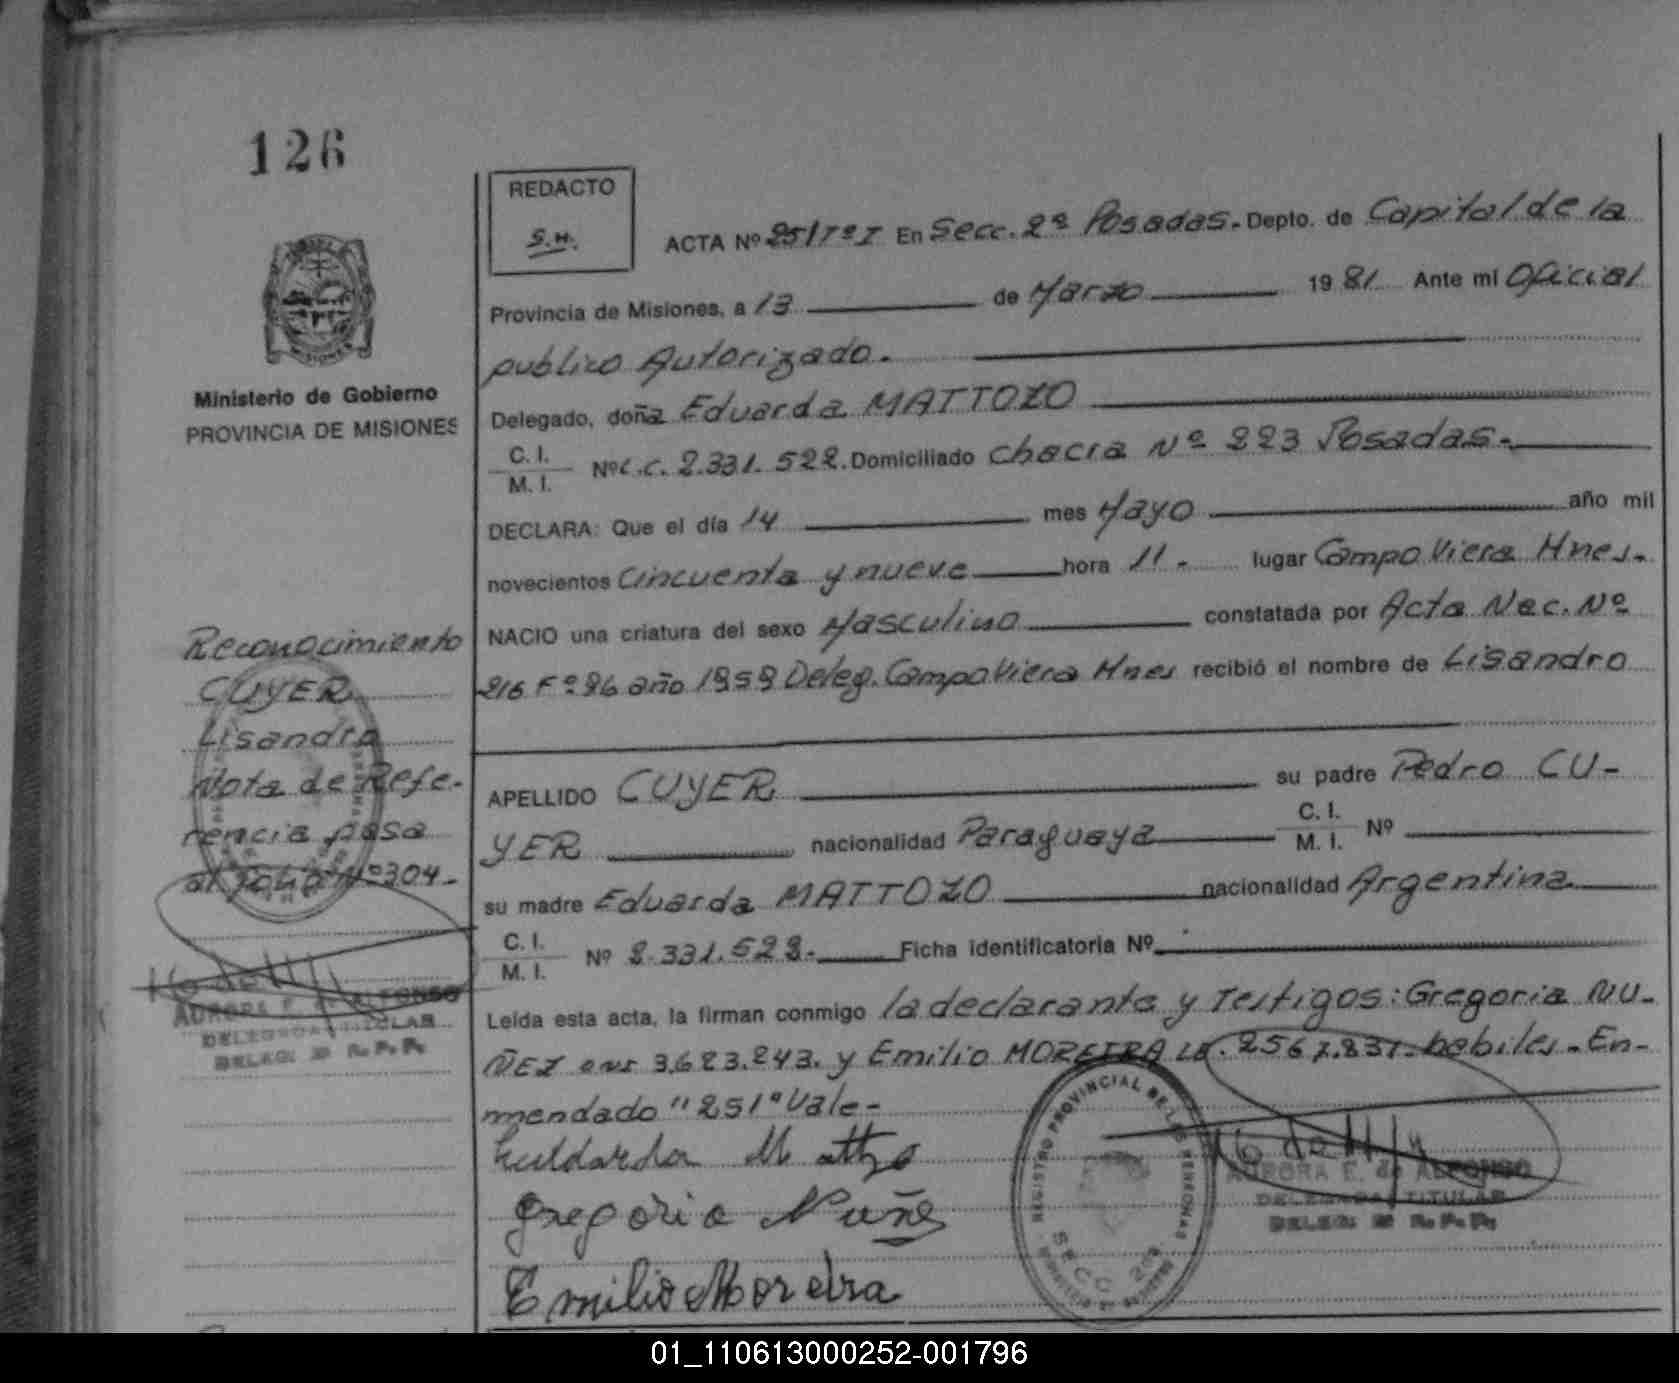 126
REDACTO
S.H.
ACTA Nº 251TºI En Secc. 2ª Posadas. Depto. de Capital de la
Provincia de Misiones, a 13 de Marzo 1981 Ante mi Oficial
publico Autorizado.
Delegado, doña Eduarda MATTOZO
C. I.
M. I.
Nº L.C. 2.331.522. Domiciliado Chacra Nº 223 Posadas.
DECLARA: Que el día 14 mes Mayo año mil
novecientos Cincuenta y nueve hora 11.- lugar Campo Viera Mnes.
NACIO una criatura del sexo Masculino constatada por Acta Nac. Nº
216 Fº 26 año 1959 Deleg. Campo Viera Mnes recibió el nombre de Lisandro
APELLIDO CUYER su padre Pedro CU-
YER nacionalidad Paraguaya C. I.
M. I. Nº
su madre Eduarda MATTOZO nacionalidad Argentina
C. I.
M. I.
Nº 2.331.522.- Ficha identificatoria Nº
Leída esta acta, la firman conmigo la declarante y Testigos: Gregoria NU-
ÑEZ 3.623.243. y Emilio MOREIRA habiles. En-
mendado "251" Vale-
Gregoria Nuñes
Emilio Moreira
REGISTRO PROVINCIAL DE LAS PERSONAS
SECC. 2da
AURORA E. de ALFONSO
DELEGADA TITULAR
DELEG. 2ª R.P.P.
Ministerio de Gobierno
PROVINCIA DE MISIONES
Reconocimiento
CUYER
Lisandro
Nota de Refe-
rencia pasa
al folio Nº 304.-
AURORA E. de ALFONSO
DELEGADA TITULAR
DELEG. 2ª R.P.P.
01_110613000252-001796